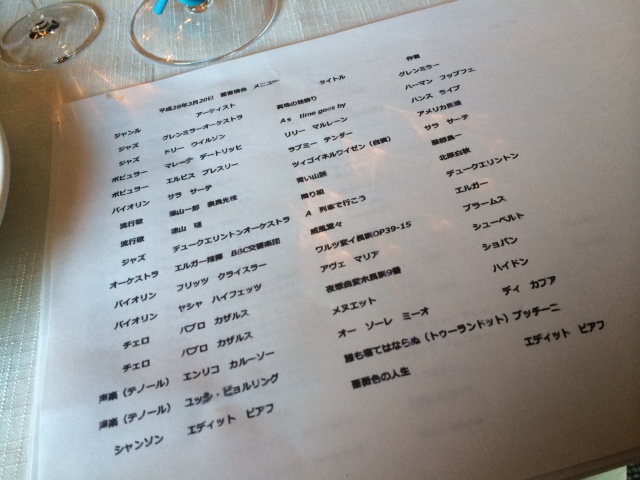 平成28年3月20日 蓄音機会 メニュー
ジャンル アーティスト タイトル 作者
ジャズ グレンミラーオーケストラ 真珠の首飾り グレンミラー
ジャズ ドリー ウイルソン As time goes by ハーマン フップフェ
ポピュラー マレーデ デートリッヒ リリー マルレーン ハンス ライプ
ポピュラー エルビス プレスリー ラブミー テンダー アメリカ民謡
バイオリン サラ サーテ ツィゴイネルワイゼン（自演） サラ サーテ
流行歌 藤山一郎 奈良光枝 青い山脈 服部良一
流行歌 徳山 璉 踊り組 北原白秋
ジャズ デュークエリントンオーケストラ A 列車で行こう デュークエリントン
オーケストラ エルガー指揮 BBC交響楽団 威風堂々 エルガー
バイオリン フリッツ クライスラー ワルツ変イ長調OP39-15 ブラームス
バイオリン ヤシャ ハイフェッツ アヴェ マリア シューベルト
チェロ パブロ カザルス 夜想曲変ホ長調9番 ショパン
チェロ パブロ カザルス メヌエット ハイドン
声楽（テノール） エンリコ カルーソー オー ソーレ ミーオ ディ カプア
声楽（テノール） ユッシ・ビョルリング 誰も寝てはならぬ（トゥーランドット） プッチーニ
シャンソン エディット ピアフ 薔薇色の人生 エディット ピアフ